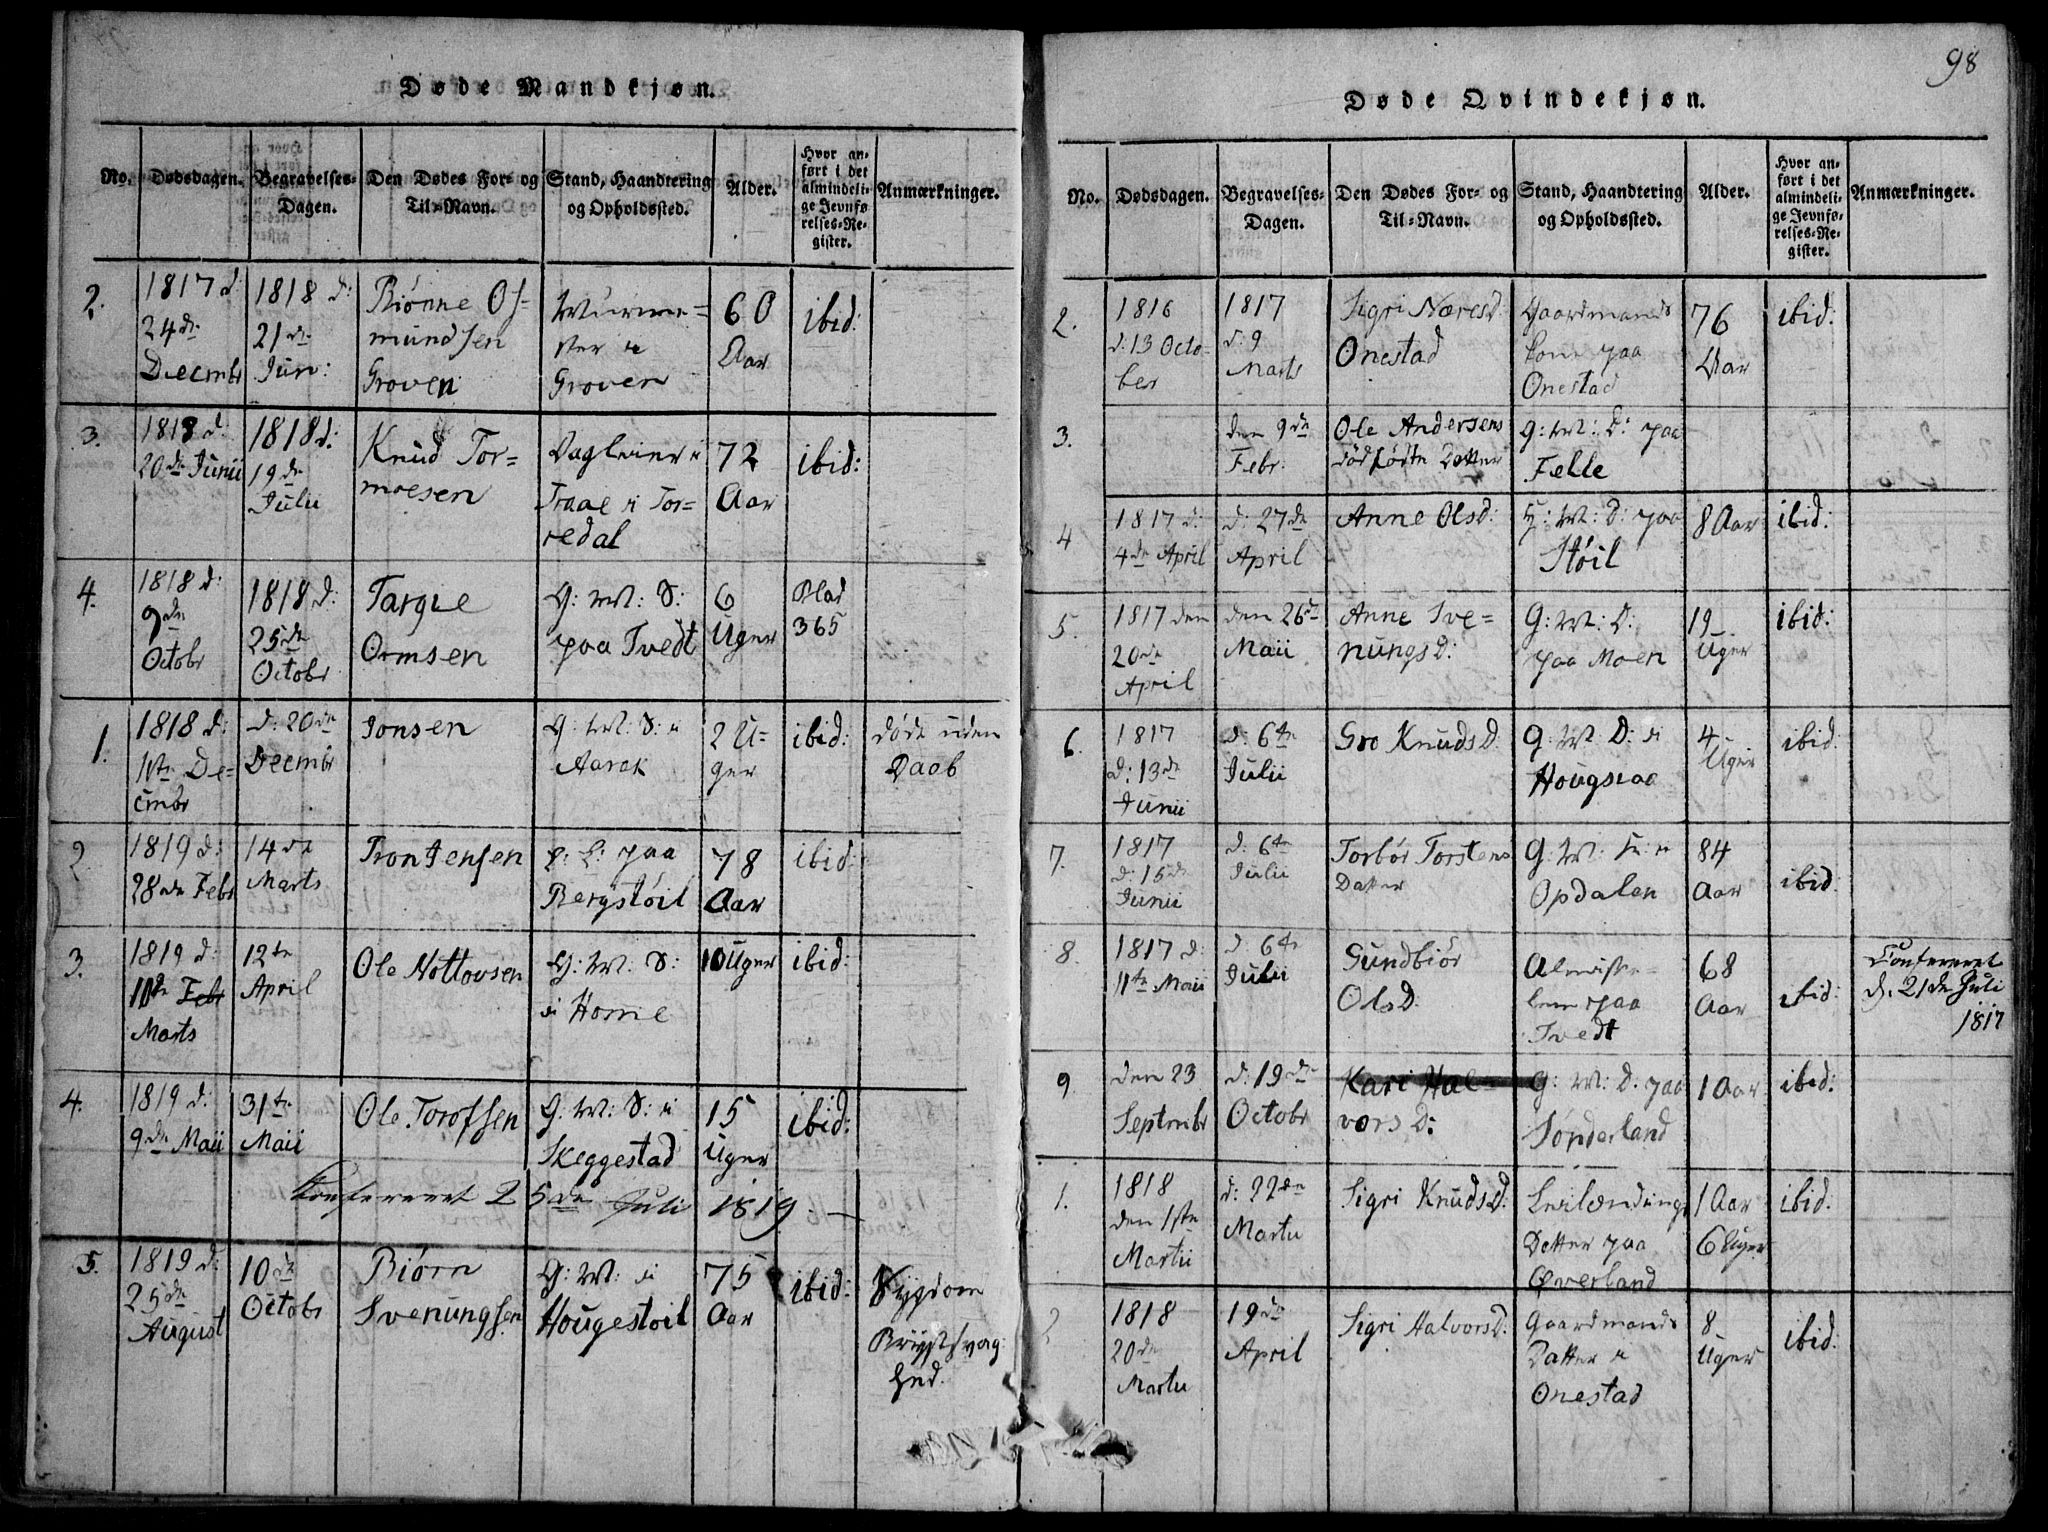 98
Døde Mandkjøn.
No.
Dødsdagen.
Begravelses-
Dagen.
Den Dødes For- og
Til-Navn.
Stand, Haandtering
og Opholdssted.
Alder.
Hvor an-
ført i det
almindeli-
ge Jevnfø
relses-Re-
gister.
Anmærkninger.
2.
1817 d:
24de
Decmbr
1818 d:
21de
Jun:
Biønne Os-
mundsen
Groven
Groven
60
Aar
ibid:
3.
1818 d:
20de Junii
1818 d:
19de
Julii
Knud Tor-
moesen
Traae i Tor-
redal
72
Aar
ibid:
4.
1818 d:
9de
Octobr
1818 d:
25de
Octobr
Targie
Ormsen
G: M: S:
paa Tvedt
6
Uger
Blad
365
1.
1818 d:
1ste De-
cmbr
d: 20de
Decmbr
Jonsen
G: M: S: i
Aarak
2 U-
ger
ibid:
døde uden
Daab
2
1819 d:
28de Febr
14de
Marts
Tron Jensen
paa
Bergstøil
78
Aar
ibid:
3.
1819 d:
10de Febr
Marts
12te
April
Ole Nottovsen
G: M: S:
i Horne
10 Uger
ibid:
4.
1819 d:
9de Maii
31te
Maii
Ole Torofsen
G: M: S: i
Skeggestad
15
Uger
ibid:
Confereret 25de Juli 1819.
5.
1819 d:
25de
August
10de
Octobr
Biørn
Svenungsen
G: M: i
Hougestøil
75
Aar
ibid:
Sygdom
Brystsvag
hed.
Døde Qvindekjøn.
No.
Dødsdagen.
Begravelses-
Dagen.
Den Dødes For- og
Til-Navn.
Stand, Haandtering
og Opholdssted.
Alder.
Hvor an-
ført i det
almindeli-
ge Jevnfø-
relses-Re-
gister.
Anmærkninger.
2.
1816
d. 13 Octo-
ber
1817
d: 9
Marts
Sigri Næresd.
Onestad
Gaardmands
kone paa
Onestad
76
Aar
ibid:
3.
den 9de
Febr:
Ole Andersens
dødfødte Datter
G: M: D: paa
Felle
4
1817 d:
4de April
d: 27de
April
Anne Olsd:
H: M: D: paa
Støil
8 Aar
ibid:
5.
1817 den
20de
April
den 26de
Maii
Anne Sve-
nungsD:
G: M: D:
paa Moen
19
Uger
ibid:
6.
1817
d: 13de
Junii
d: 6te
Julii
Gro KnudsD.
G: M: D: i
Hougsraa
4
Uger
ibid:
7.
1817
d: 15de
Junii
d: 6te
Julii
Torbør Torstens
Datter
G: M: K: i
Opdalen
84
Aar
ibid:
8.
1817 d:
11te Maii
d: 6te
Julii
Gundbiør
OlsD.
Almisse-
lem paa
Tvedt
68
Aar
ibid:
Confereret
d. 21de Juli
1817
9.
den 23
Septmbr
d: 19de
Octobr
Kari Hal-
vorsD:
G: M: D: paa
Sønderland
1 Aar
ibid:
1.
1818
den 1ste
Martii
d: 22de
Martii
Sigri KnudsD.
Leilændings
Datter paa
Øverland
1 Aar
6 Uger
ibid:
2
1818
20de
Martii
19de
April
Sigri HalvorsD:
Gaardmands
Datter i
Onestad
8
Uger
ibid: